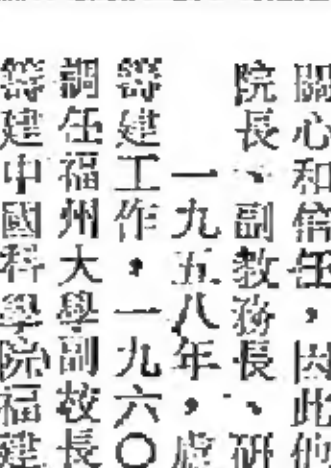 關心和信任，因此他
院長、副教務長、研
一九五八年，盧
籌建工作，一九六〇
調任福州大學副校長
籌建中國科學院福建